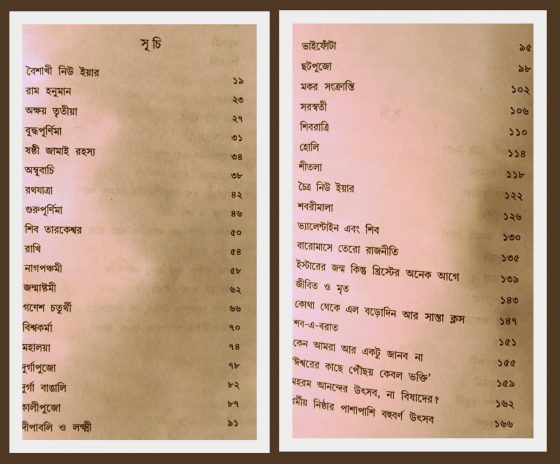 সূচি
বৈশাখী নিউ ইয়ার ১৯
রাম হনুমান ২৩
অক্ষয় তৃতীয়া ২৭
বুদ্ধপূর্ণিমা ৩১
ষষ্ঠী জামাই রহস্য ৩৪
অম্বুবাচি ৩৮
রথযাত্রা ৪২
গুরুপূর্ণিমা ৪৬
শিব তারকেশ্বর ৫০
রাখি ৫৪
নাগপঞ্চমী ৫৮
জন্মাষ্টমী ৬২
গণেশ চতুর্থী ৬৬
বিশ্বকর্মা ৭০
মহালয়া ৭৪
দুর্গাপুজো ৭৮
দুর্গা বাঙালি ৮২
কালীপুজো ৮৭
দীপাবলি ও লক্ষ্মী ৯১
ভাইফোঁটা ৯৫
ছটপুজো ৯৮
মকর সংক্রান্তি ১০২
সরস্বতী ১০৬
শিবরাত্রি ১১০
হোলি ১১৪
শীতলা ১১৮
চৈত্র নিউ ইয়ার ১২২
শবরীমালা ১২৬
ভ্যালেন্টাইন এবং শিব ১৩০
বারোমাসে তেরো রাজনীতি ১৩৫
ইস্টারের জন্ম কিন্তু খ্রিস্টের অনেক আগে ১৩৯
জীবিত ও মৃত ১৪৩
কোথা থেকে এল বড়োদিন আর সান্তা ক্লস ১৪৭
শব-এ-বরাত ১৫১
কেন আমরা আর একটু জানব না ১৫৫
'ঈশ্বরের কাছে পৌঁছয় কেবল ভক্তি' ১৫৯
মহরম আনন্দের উৎসব, না বিষাদের? ১৬২
ধর্মীয় নিষ্ঠার পাশাপাশি বহুবর্ণ উৎসব ১৬৬